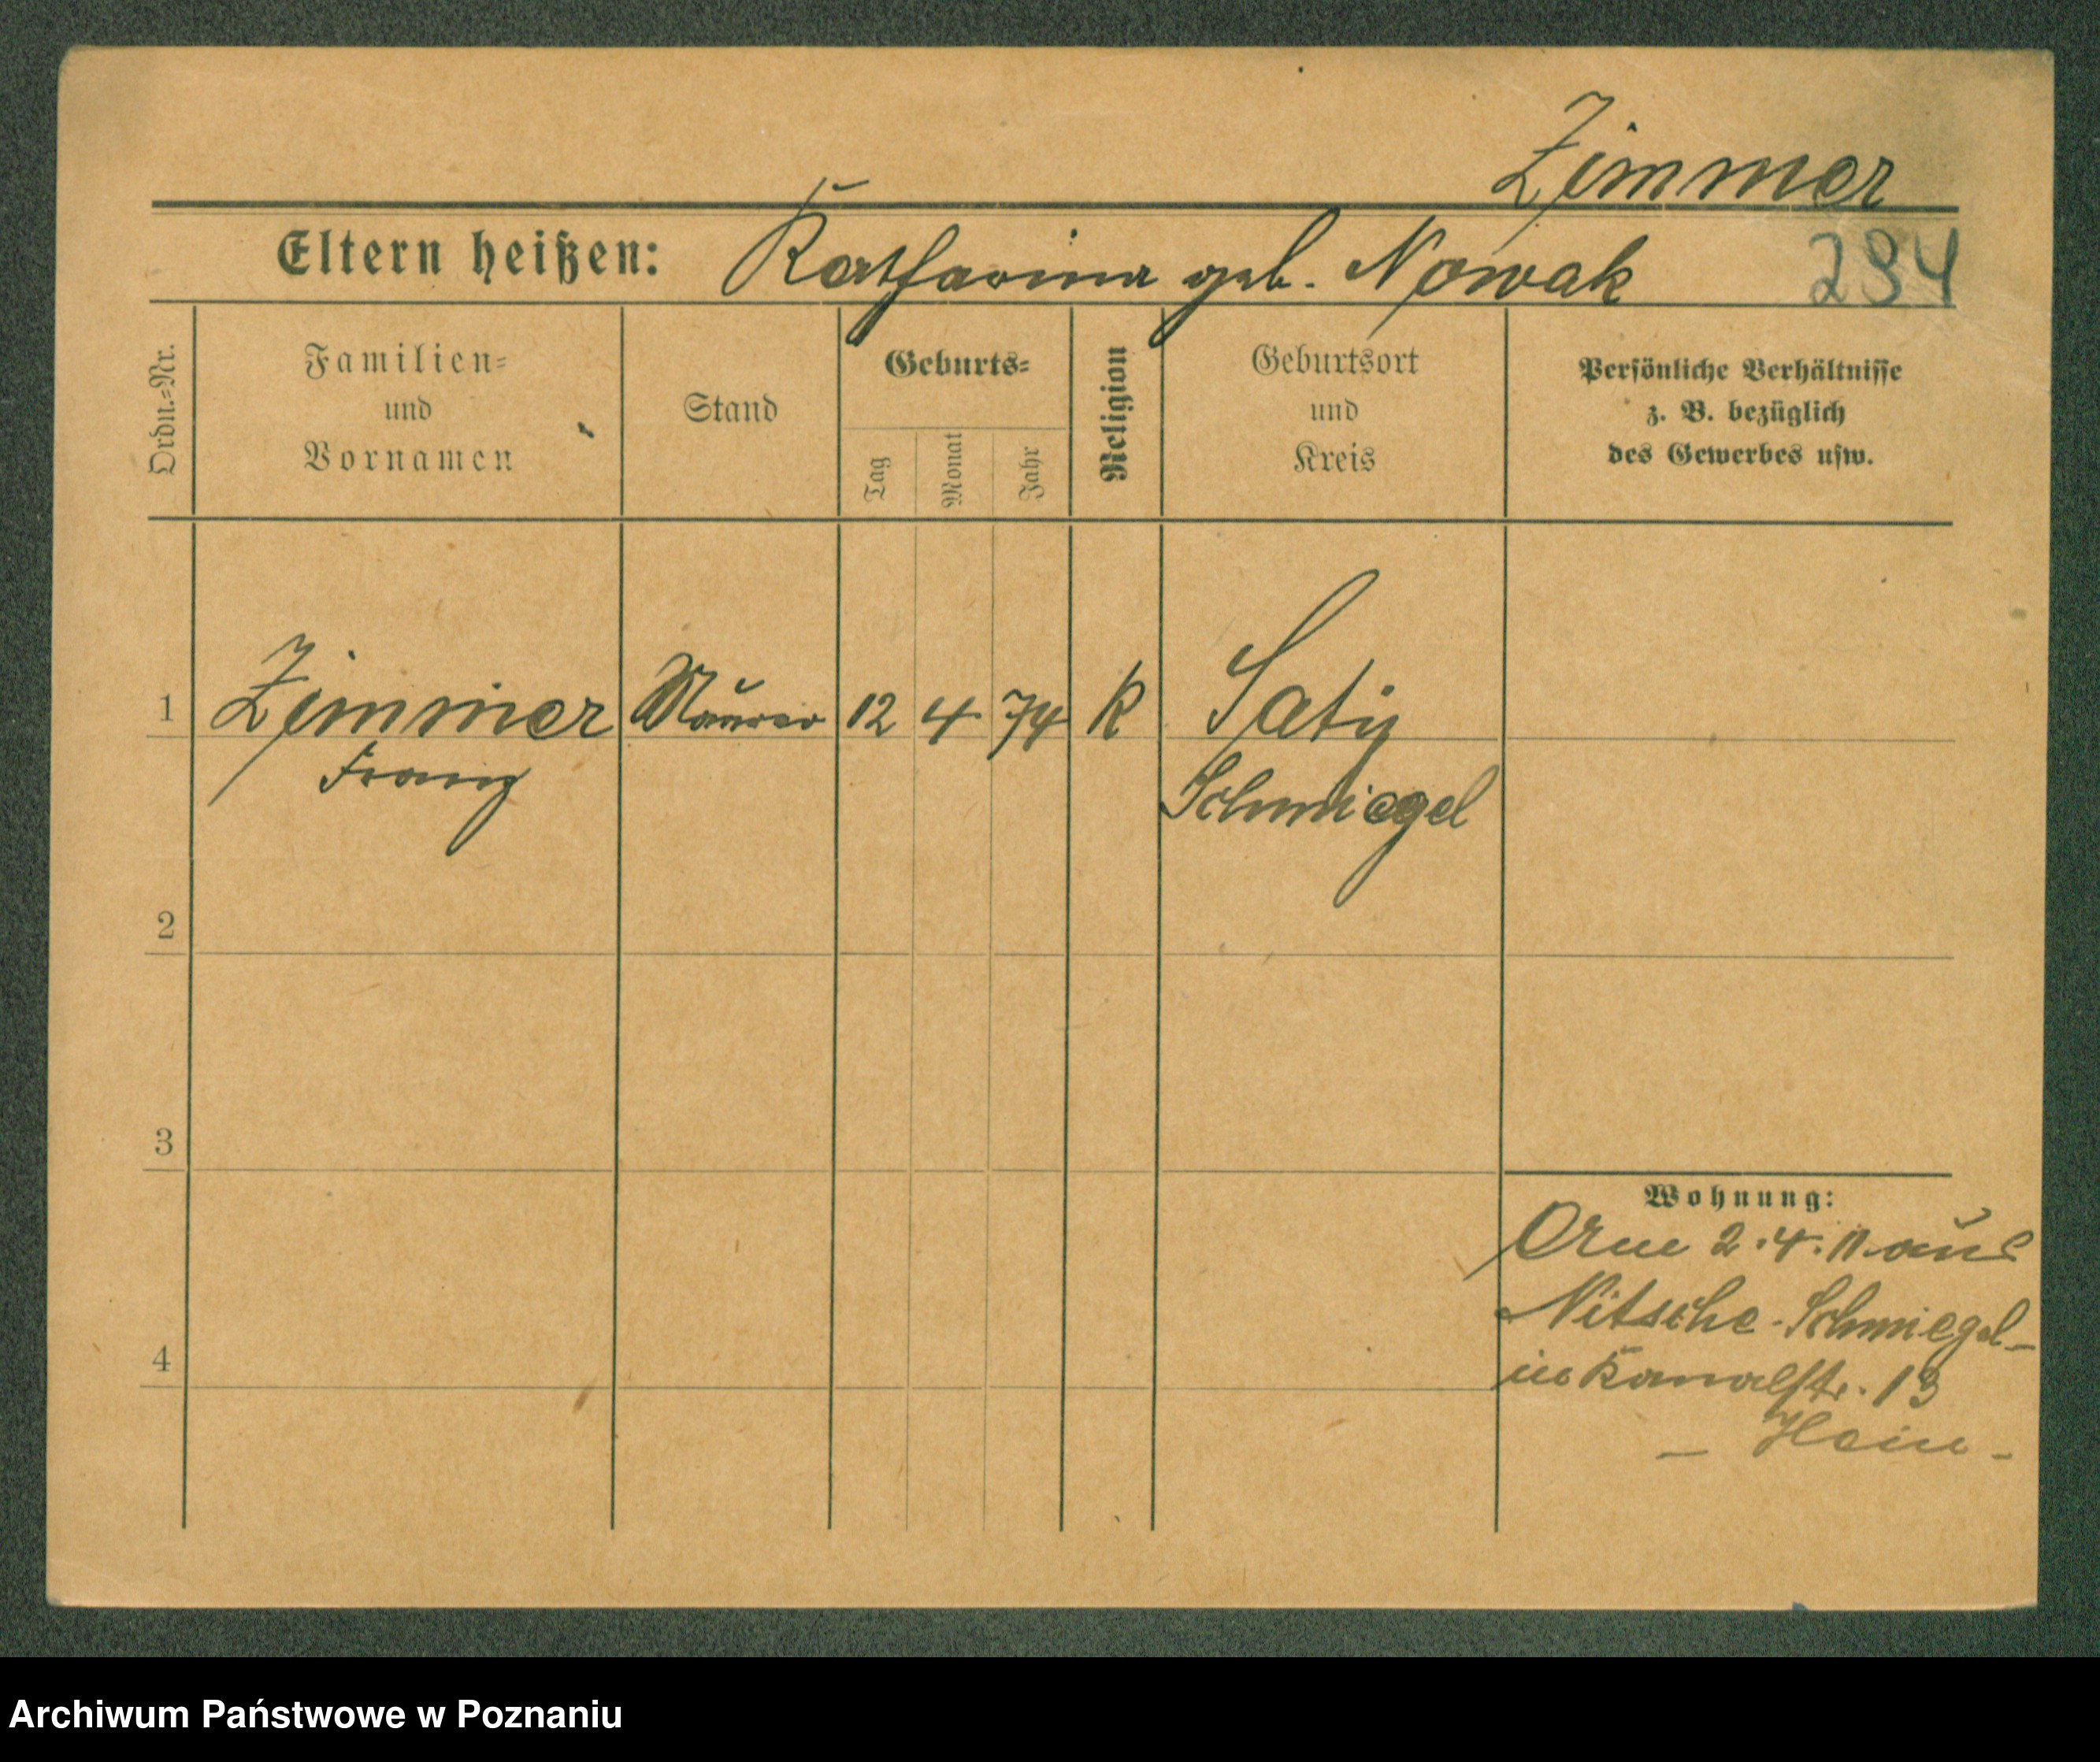 Zimmer
Eltern heißen: Katharina geb. Nowak 294
Ordn.-Nr.
Familien-
und
Vornamen
Stand
Geburts-
Tag
Monat
Jahr
Religion
Geburtsort
und
Kreis
Persönliche Verhältnisse
z. B. bezüglich
des Gewerbes usw.
1 Zimmer Maurer 12 4 74 K Saty
Franz
Schmiegel
2
3
4
Wohnung:
2.4.11 aus
Nitsche-Schmiegel-
Kanalstr. 13
Archiwum Państwowe w Poznaniu